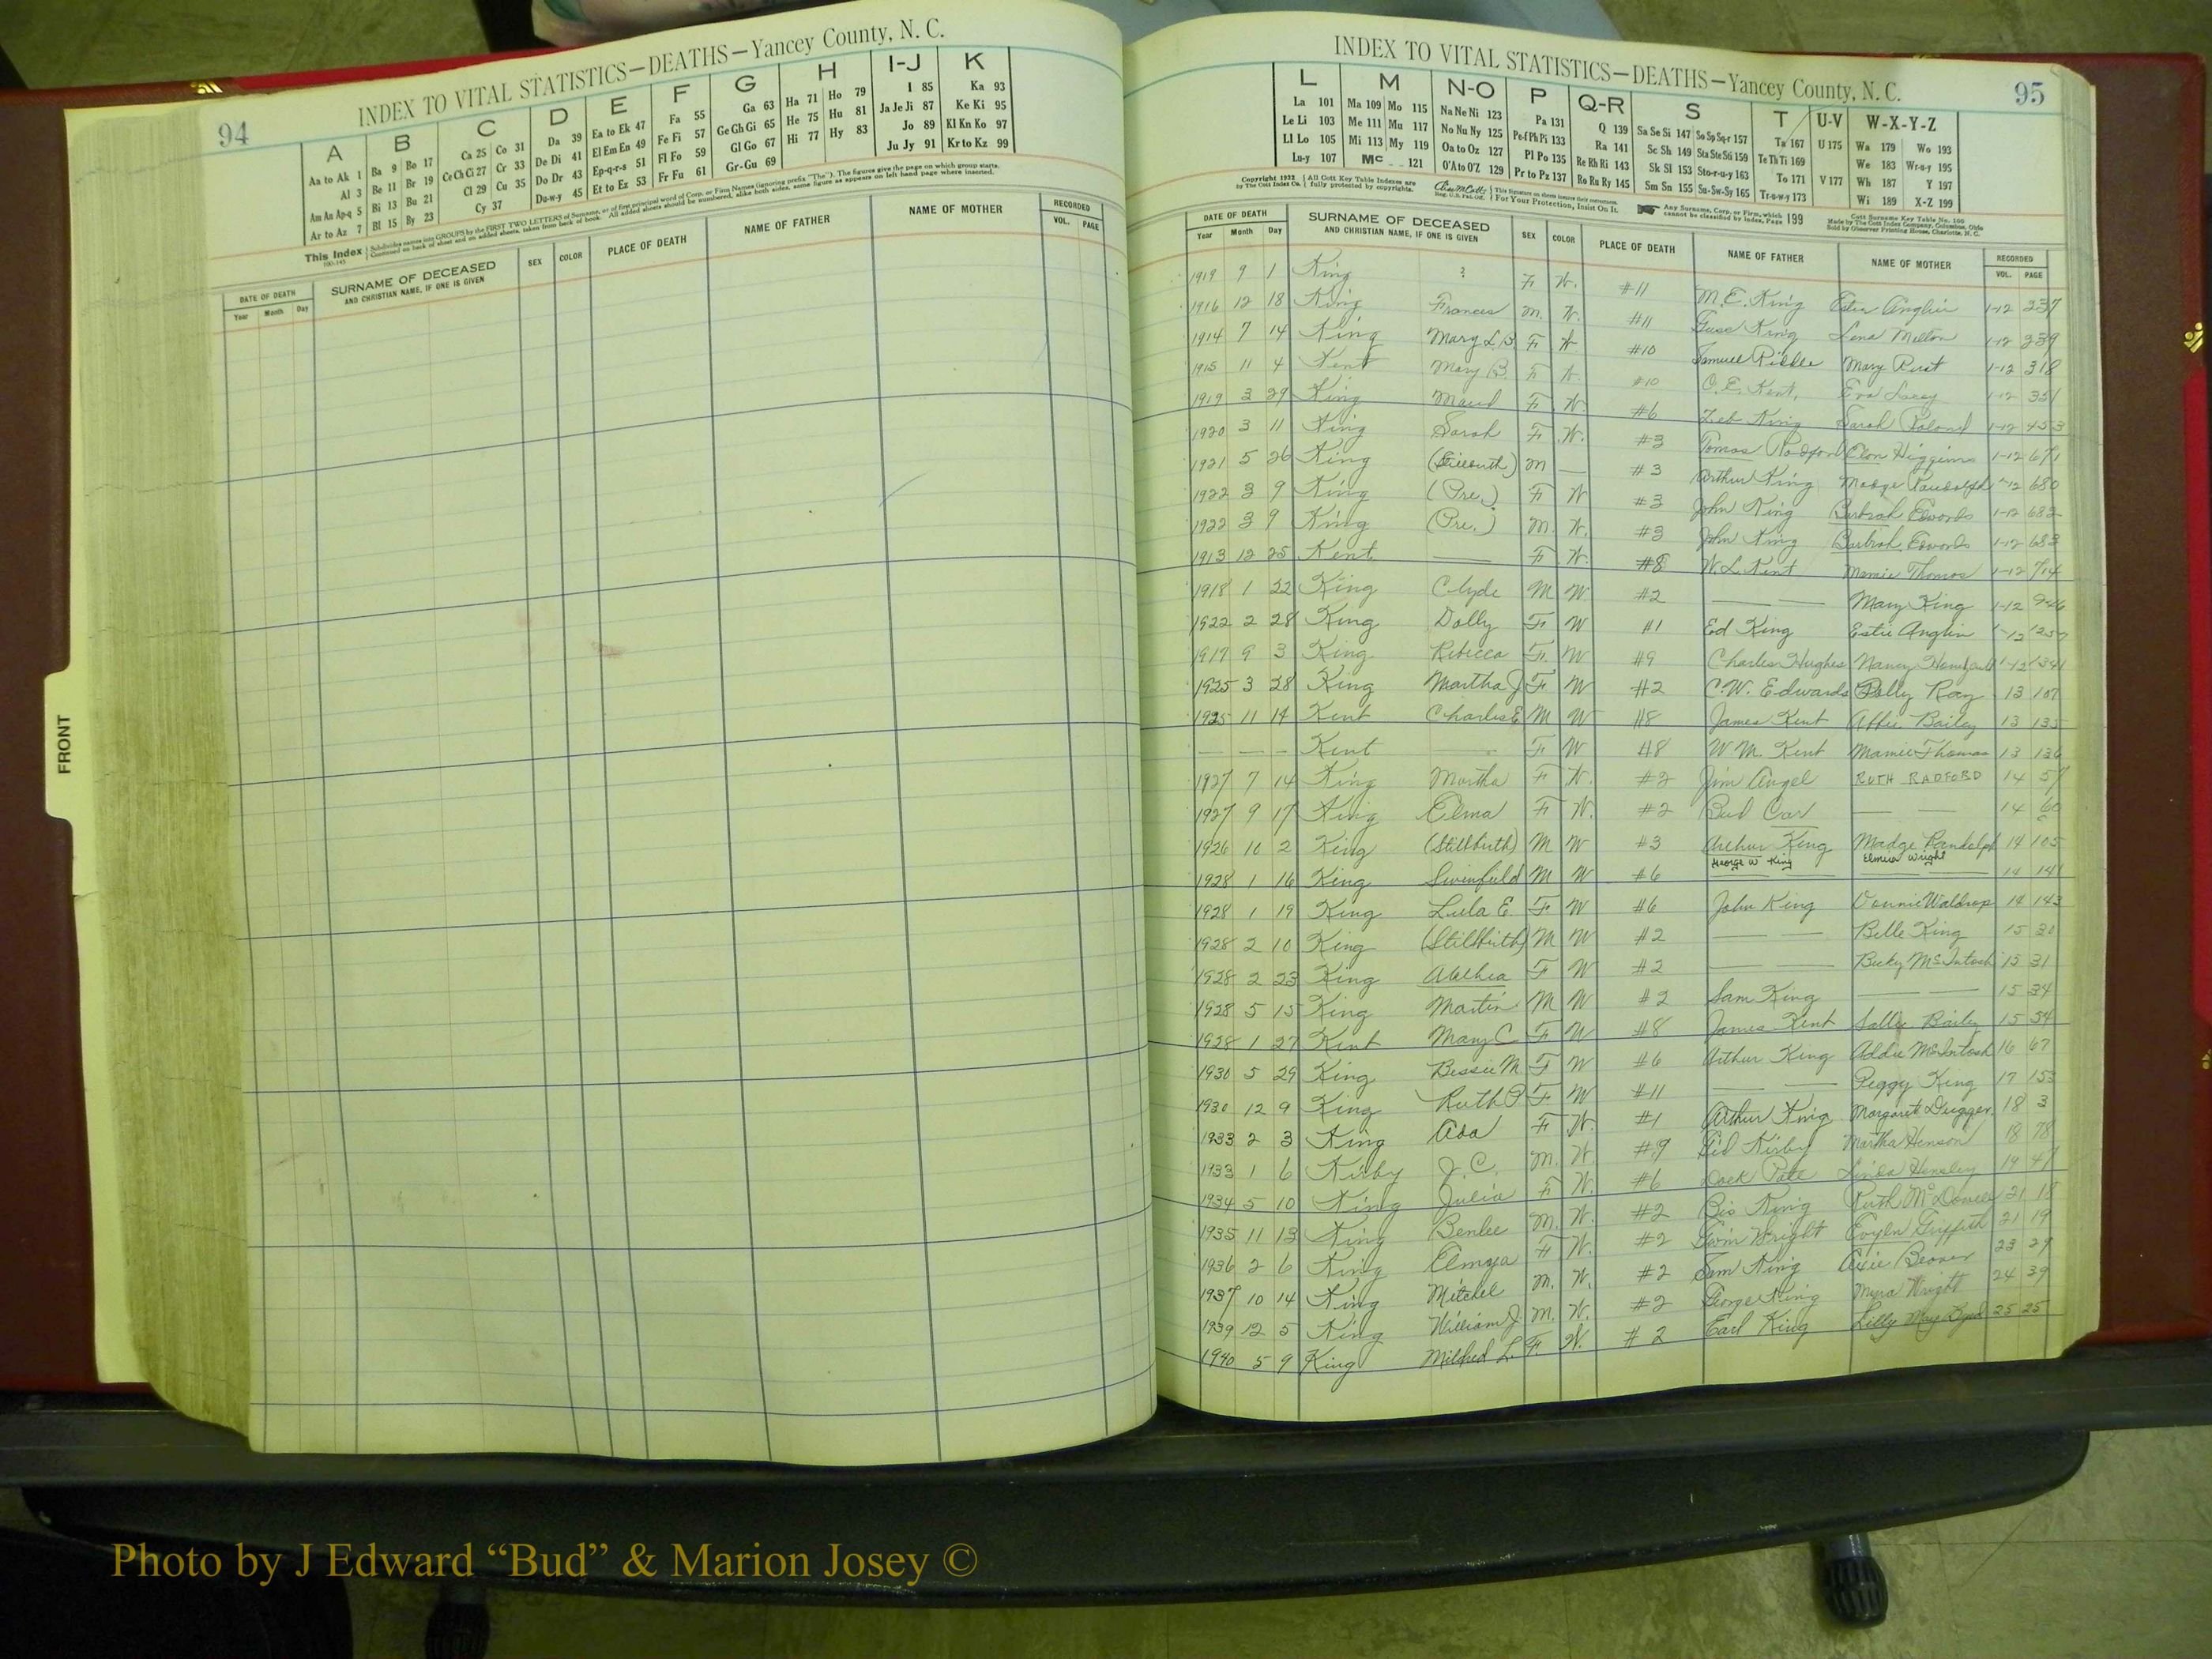 94
INDEX TO VITAL STATISTICS—DEATHS—Yancey County, N. C.
A B C D E F G H I-J K
Aa to Ak 1 Ba 9 Bo 17 Ca 25 Co 31 Da 39 Ea to Ek 47 Fa 55 Ga 63 Ha 71 Ho 79 I 85 Ka 93
Al 3 Be 11 Br 19 Ce Ch Ci 27 Cr 33 De Di 41 El Em En 49 Fe Fi 57 Ge Gh Gi 65 He 75 Hu 81 Ja Je Ji 87 Ke Ki 95
Am An Ap-q 5 Bi 13 Bu 21 Cl 29 Cu 35 Do Dr 43 Ep-q-r-s 51 Fl Fo 59 Gl Go 67 Hi 77 Hy 83 Jo 89 Kl Kn Ko 97
Ar to Az 7 Bl 15 By 23 Cy 37 Du-w-y 45 Et to Ez 53 Fr Fu 61 Gr-Gu 69 Ju Jy 91 Kr to Kz 99
This Index Subdivides names into GROUPS by the FIRST TWO LETTERS of Surname, or of first principal word of Corp. or Firm Names (ignoring prefix "The"). The figures give the page on which group starts.
Continued on back of sheet and on added sheets, taken from back of book. All added sheets should be numbered, alike both sides, same figure as appears on left hand page where inserted.
DATE OF DEATH SURNAME OF DECEASED SEX COLOR PLACE OF DEATH NAME OF FATHER NAME OF MOTHER RECORDED
Year Month Day AND CHRISTIAN NAME, IF ONE IS GIVEN VOL. PAGE
FRONT
INDEX TO VITAL STATISTICS—DEATHS—Yancey County, N. C.
95
L M N-O P Q-R S T U-V W-X-Y-Z
La 101 Ma 109 Mo 115 Na Ne Ni 123 Pa 131 Q 139 Sa Se Si 147 So Sp Sq-r 157 Ta 167 U 175 Wa 179 Wo 193
Le Li 103 Me 111 Mu 117 No Nu Ny 125 Pe-f Ph Pi 133 Ra 141 Sc Sh 149 Sta Ste Sti 159 Te Th Ti 169 We 183 Wr-u-y 195
Ll Lo 105 Mi 113 My 119 Oa to Oz 127 Pl Po 135 Re Rh Ri 143 Sk Sl 153 Sto-r-u-y 163 To 171 V 177 Wh 187 Y 197
Lu-y 107 Mc 121 O'A to O'Z 129 Pr to Pz 137 Ro Ru Ry 145 Sm Sn 155 Su-Sw-Sy 165 Tr-u-w-y 173 Wi 189 X-Z 199
Copyright 1922 by The Cott Index Co. All Cott Key Table Indexes are fully protected by copyrights.
For Your Protection, Insist On It.
Any Surname, Corp. or Firm, which cannot be classified by index, Page 199
Cott Surname Key Table No. 100
Made by The Cott Index Company, Columbus, Ohio
Sold by Observer Printing House, Charlotte, N. C.
DATE OF DEATH SURNAME OF DECEASED SEX COLOR PLACE OF DEATH NAME OF FATHER NAME OF MOTHER RECORDED
Year Month Day AND CHRISTIAN NAME, IF ONE IS GIVEN VOL. PAGE
1919 9 1 King ? F W. #11 M. E. King Ester Anglin 1-12 237
1916 12 18 King Frances M. W. #11 King Lena Melton 1-12 239
1914 7 14 King Mary L. B. F W #10 Samuel Riddle Mary 1-12 318
1915 11 4 Kent Mary B. F W. #10 C. E. Kent, Eva 1-12 351
1919 3 29 King Maud F W. #6 Zeb King Sarah 1-12 453
1920 3 11 King Sarah F W. #3 Tomas Radford Higgins 1-12 671
1921 5 26 King (Stillbirth) M — #3 Arthur King Madge Randolph 1-12 680
1922 3 9 King (Pre.) F W #3 John King Barbrah Edwards 1-12 682
1922 3 9 King (Pre.) M. W. #3 John King Barbrah Edwards 1-12 683
1913 12 25 Kent — F W. #8 W. L. Kent Mamie Thomas 1-12 714
1918 1 22 King Clyde M W #2 — — Mary King 1-12 946
1922 2 28 King Dolly F W #1 Ed King Estie Anglin 1-12 1257
1917 9 3 King Rebecca F. W #9 Charles Hughes Nancy 1-12 1341
1925 3 28 King Martha J F W #2 C. W. Edwards Polly Ray 13 107
1925 11 14 Kent Charles E M W #8 James Kent Affie Bailey 13 135
— — — Kent — F W #8 W. M. Kent Mamie Thomas 13 136
1927 7 14 King Martha F W. #2 Jim Angel RUTH RADFORD 14 57
1927 9 17 King Elma F W. #2 Bud Car — 14 60
1926 10 2 King (Stillbirth) M W #3 Arthur King Madge Randolph 14 105
George W King Elmira Wright
1928 1 16 King Swinfield M W #6 14 141
1928 1 19 King Lula E. F W #6 John King Donnie Waldrop 14 143
1928 2 10 King (Stillbirth) M W #2 — — Belle King 15 30
1928 2 23 King F W #2 — Becky McIntosh 15 31
1928 5 15 King Martin M W #2 Sam King — — 15 34
1928 1 27 Kent Mary C F W #8 James Kent Sally Bailey 15 54
1930 5 29 King Bessie M F W #6 Arthur King Addie McIntosh 16 67
1930 12 9 King Ruth P F W #11 — — Peggy King 17 153
1933 2 3 King Ada F W. #1 Arthur King Margaret Dugger 18 3
1933 1 6 Kirby J. C. M. W. #9 Kirby Martha Henson 18 78
1934 5 10 King Julia F W. #6 Pate Linda Hensley 19 47
1935 11 13 King Benlee M. W. #2 King Ruth McDowell 21 18
1936 2 6 King F W. #2 Wright Griffith 21 19
1937 10 14 King Mitchel M. W. #2 Sam King 23 29
1939 12 5 King William J M. W. #2 George King Myra Wright 24 39
1940 5 9 King Mildred L. F. W. #2 Earl King Lilly May Byrd 25 25
Photo by J Edward “Bud” & Marion Josey ©